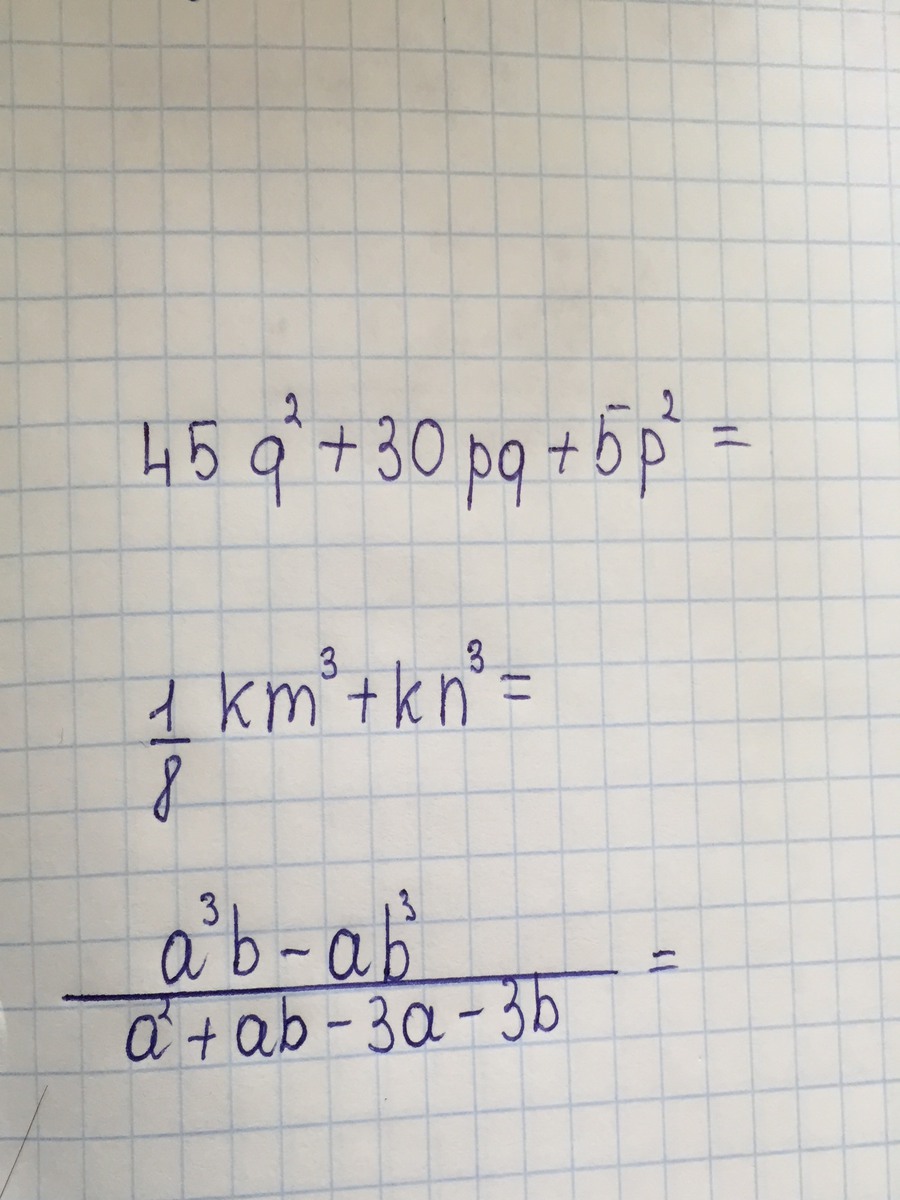 45 q² + 30 pq + 5p² =
1/8 km³ + kn³ =
a³b - ab³ / a² + ab - 3a - 3b =